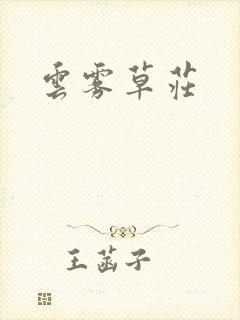 雲雾草莊
王菡子